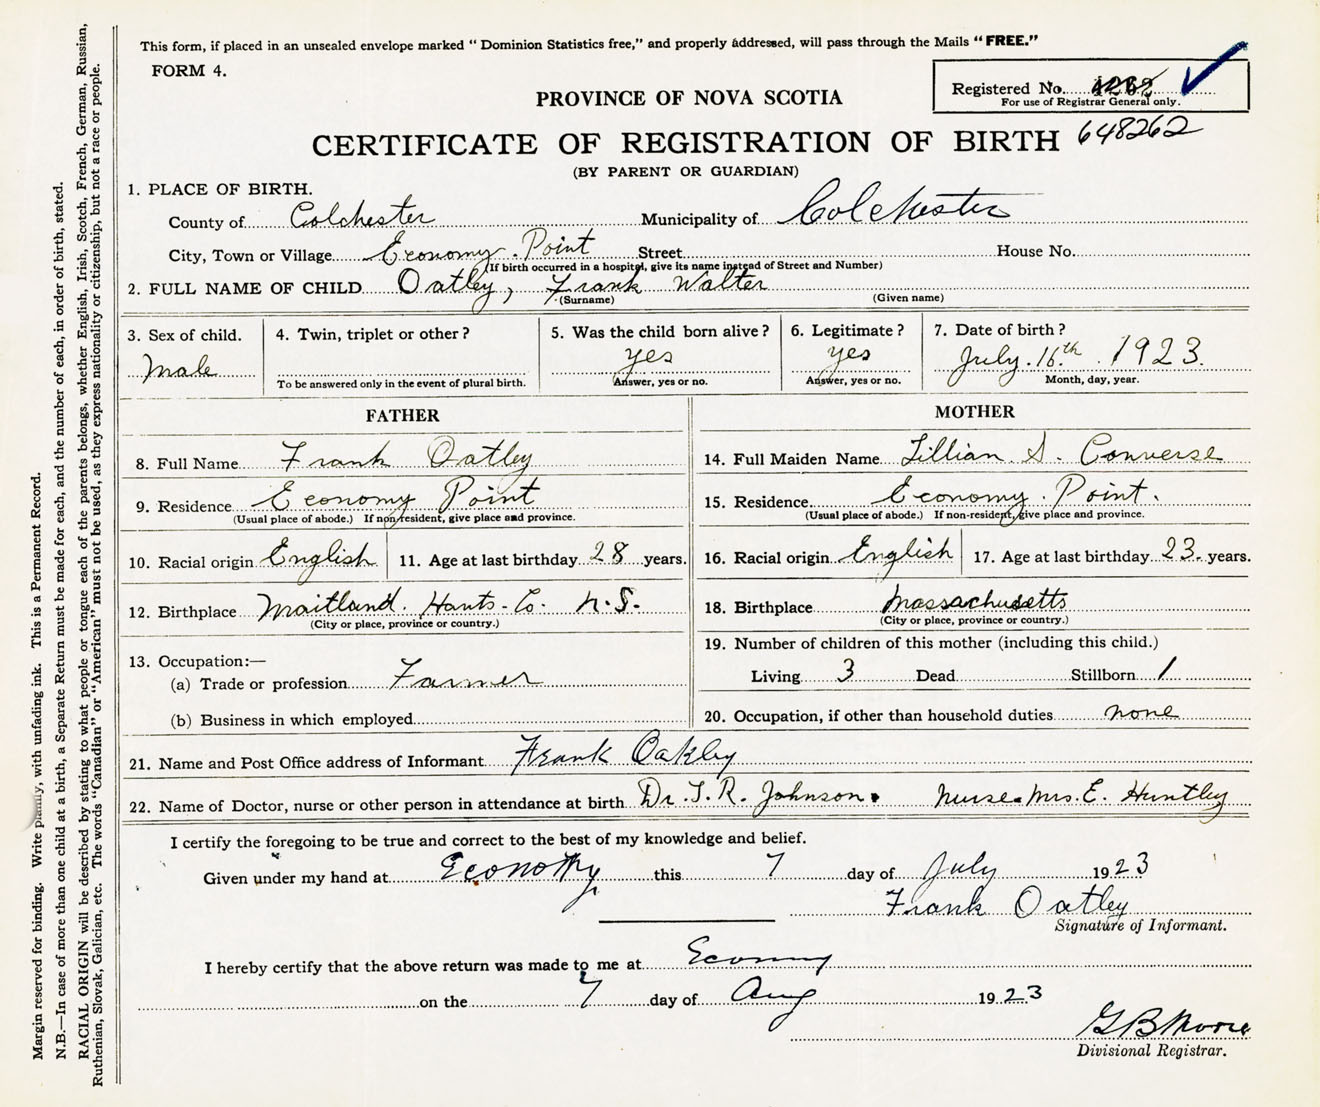 This form, if placed in an unsealed envelope marked " Dominion Statistics free," and properly addressed, will pass through the Mails "FREE."
FORM 4.
Registered No.
For use of Registrar General only.
PROVINCE OF NOVA SCOTIA
648262
CERTIFICATE OF REGISTRATION OF BIRTH
(BY PARENT OR GUARDIAN)
1. PLACE OF BIRTH.
County of Colchester Municipality of Colchester
City, Town or Village Economy Point Street House No.
(If birth occurred in a hospital, give its name instead of Street and Number)
2. FULL NAME OF CHILD Oatley, Frank Walter
(Surname) (Given name)
3. Sex of child. 4. Twin, triplet or other? 5. Was the child born alive? 6. Legitimate? 7. Date of birth?
Male yes yes July. 16th. 1923.
To be answered only in the event of plural birth. Answer, yes or no. Answer, yes or no. Month, day, year.
FATHER MOTHER
8. Full Name Frank Oatley 14. Full Maiden Name Lillian S. Converse
9. Residence Economy Point 15. Residence Economy. Point.
(Usual place of abode.) If non-resident, give place and province. (Usual place of abode.) If non-resident, give place and province.
10. Racial origin English 11. Age at last birthday 28 years. 16. Racial origin English 17. Age at last birthday 23. years.
12. Birthplace Maitland. Hants. Co. N.S. 18. Birthplace Massachusetts
(City or place, province or country.) (City or place, province or country.)
19. Number of children of this mother (including this child.)
13. Occupation:—
(a) Trade or profession Farmer Living 3 Dead Stillborn 1
(b) Business in which employed 20. Occupation, if other than household duties none
21. Name and Post Office address of Informant Frank Oakley
22. Name of Doctor, nurse or other person in attendance at birth Dr. T. R. Johnson. Nurse. Mrs. E. Huntley
I certify the foregoing to be true and correct to the best of my knowledge and belief.
Given under my hand at Economy this 7 day of July 1923
Frank Oatley
Signature of Informant.
I hereby certify that the above return was made to me at Economy
on the 7 day of Aug 1923
G B Moore
Divisional Registrar.
Margin reserved for binding. Write plainly, with unfading ink. This is a Permanent Record.
N.B.—In case of more than one child at a birth, a Separate Return must be made for each, and the number of each, in order of birth, stated.
RACIAL ORIGIN will be described by stating to what people or tongue each of the parents belongs, whether English, Irish, Scotch, French, German, Russian,
Ruthenian, Slovak, Galician, etc. The words "Canadian" or "American" must not be used, as they express nationality or citizenship, but not a race or people.